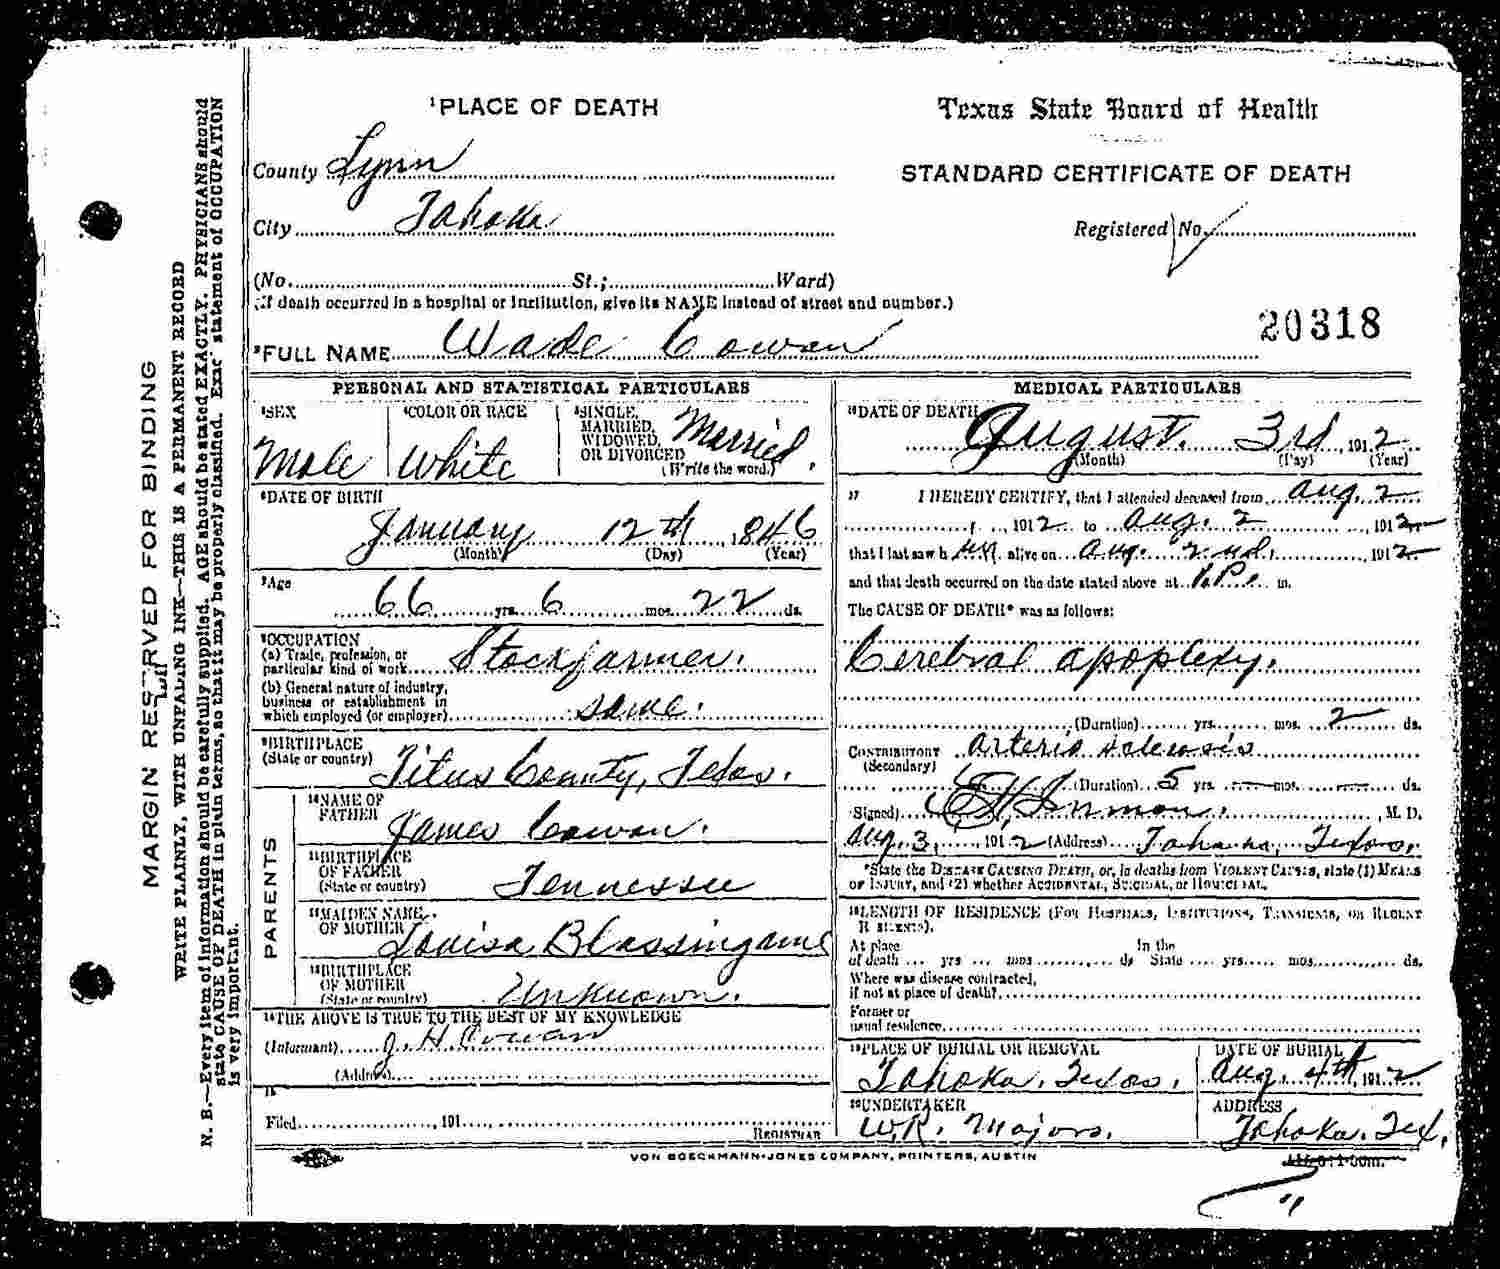 MARGIN RESERVED FOR BINDING
WRITE PLAINLY, WITH UNFADING INK—THIS IS A PERMANENT RECORD
N. B.—Every item of information should be carefully supplied. AGE should be stated EXACTLY. PHYSICIANS should
state CAUSE OF DEATH in plain terms, so that it may be properly classified. Exact statement of OCCUPATION
is very important.
1PLACE OF DEATH
Texas State Board of Health
STANDARD CERTIFICATE OF DEATH
County Lynn
City Tahoka
Registered No.
(No. St.; Ward)
(If death occurred in a hospital or institution, give its NAME instead of street and number.)
20318
2FULL NAME Wade Cowan
PERSONAL AND STATISTICAL PARTICULARS
3SEX
Male
4COLOR OR RACE
White
5SINGLE,
MARRIED,
WIDOWED,
OR DIVORCED
(Write the word.)
Married.
6DATE OF BIRTH
January 12th, 1846
(Month) (Day) (Year)
7Age
66 yrs. 6 mos. 22 ds.
8OCCUPATION
(a) Trade, profession, or
particular kind of work Stockfarmer.
(b) General nature of industry,
business or establishment in
which employed (or employer) same.
9BIRTHPLACE
(State or country) Titus County, Texas.
PARENTS
10NAME OF
FATHER James Cowan.
11BIRTHPLACE
OF FATHER
(State or country) Tennessee
12MAIDEN NAME
OF MOTHER Louisa Blassingame
13BIRTHPLACE
OF MOTHER
(State or country) Unknown.
14THE ABOVE IS TRUE TO THE BEST OF MY KNOWLEDGE
(Informant) J. H Cowan
(Address)
15
Filed , 191
REGISTRAR
MEDICAL PARTICULARS
16DATE OF DEATH
August. 3rd 1912
(Month) (Day) (Year)
17 I HEREBY CERTIFY, that I attended deceased from Aug. 2
, 1912 to Aug. 2 , 1912
that I last saw h im alive on Aug. 2nd. , 1912
and that death occurred on the date stated above at 1.P. m.
The CAUSE OF DEATH* was as follows:
Cerebral apoplexy.
(Duration) yrs. mos. 2 ds.
CONTRIBUTORY Arterio sclerosis
(Secondary)
(Duration) 5 yrs. mos. ds.
(Signed) Inmon. , M. D.
Aug. 3, 1912 (Address) Tahoka, Texas.
*State the DISEASE CAUSING DEATH, or, in deaths from VIOLENT CAUSES, state (1) MEANS
OF INJURY, and (2) whether ACCIDENTAL, SUICIDAL, or HOMICIDAL.
18LENGTH OF RESIDENCE (FOR HOSPITALS, INSTITUTIONS, TRANSIENTS, OR RECENT
RESIDENTS).
At place In the
of death yrs mos ds State yrs. mos. ds.
Where was disease contracted,
if not at place of death?
Former or
usual residence
19PLACE OF BURIAL OR REMOVAL
Tahoka. Texas.
DATE OF BURIAL
Aug. 4th, 1912
20UNDERTAKER
W.R. Majors.
ADDRESS
Tahoka. Tex.
VON BOECKMANN-JONES COMPANY, PRINTERS, AUSTIN